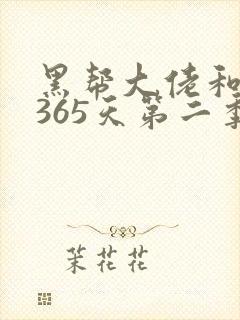 黑帮大佬和
365天第二季
茉花花